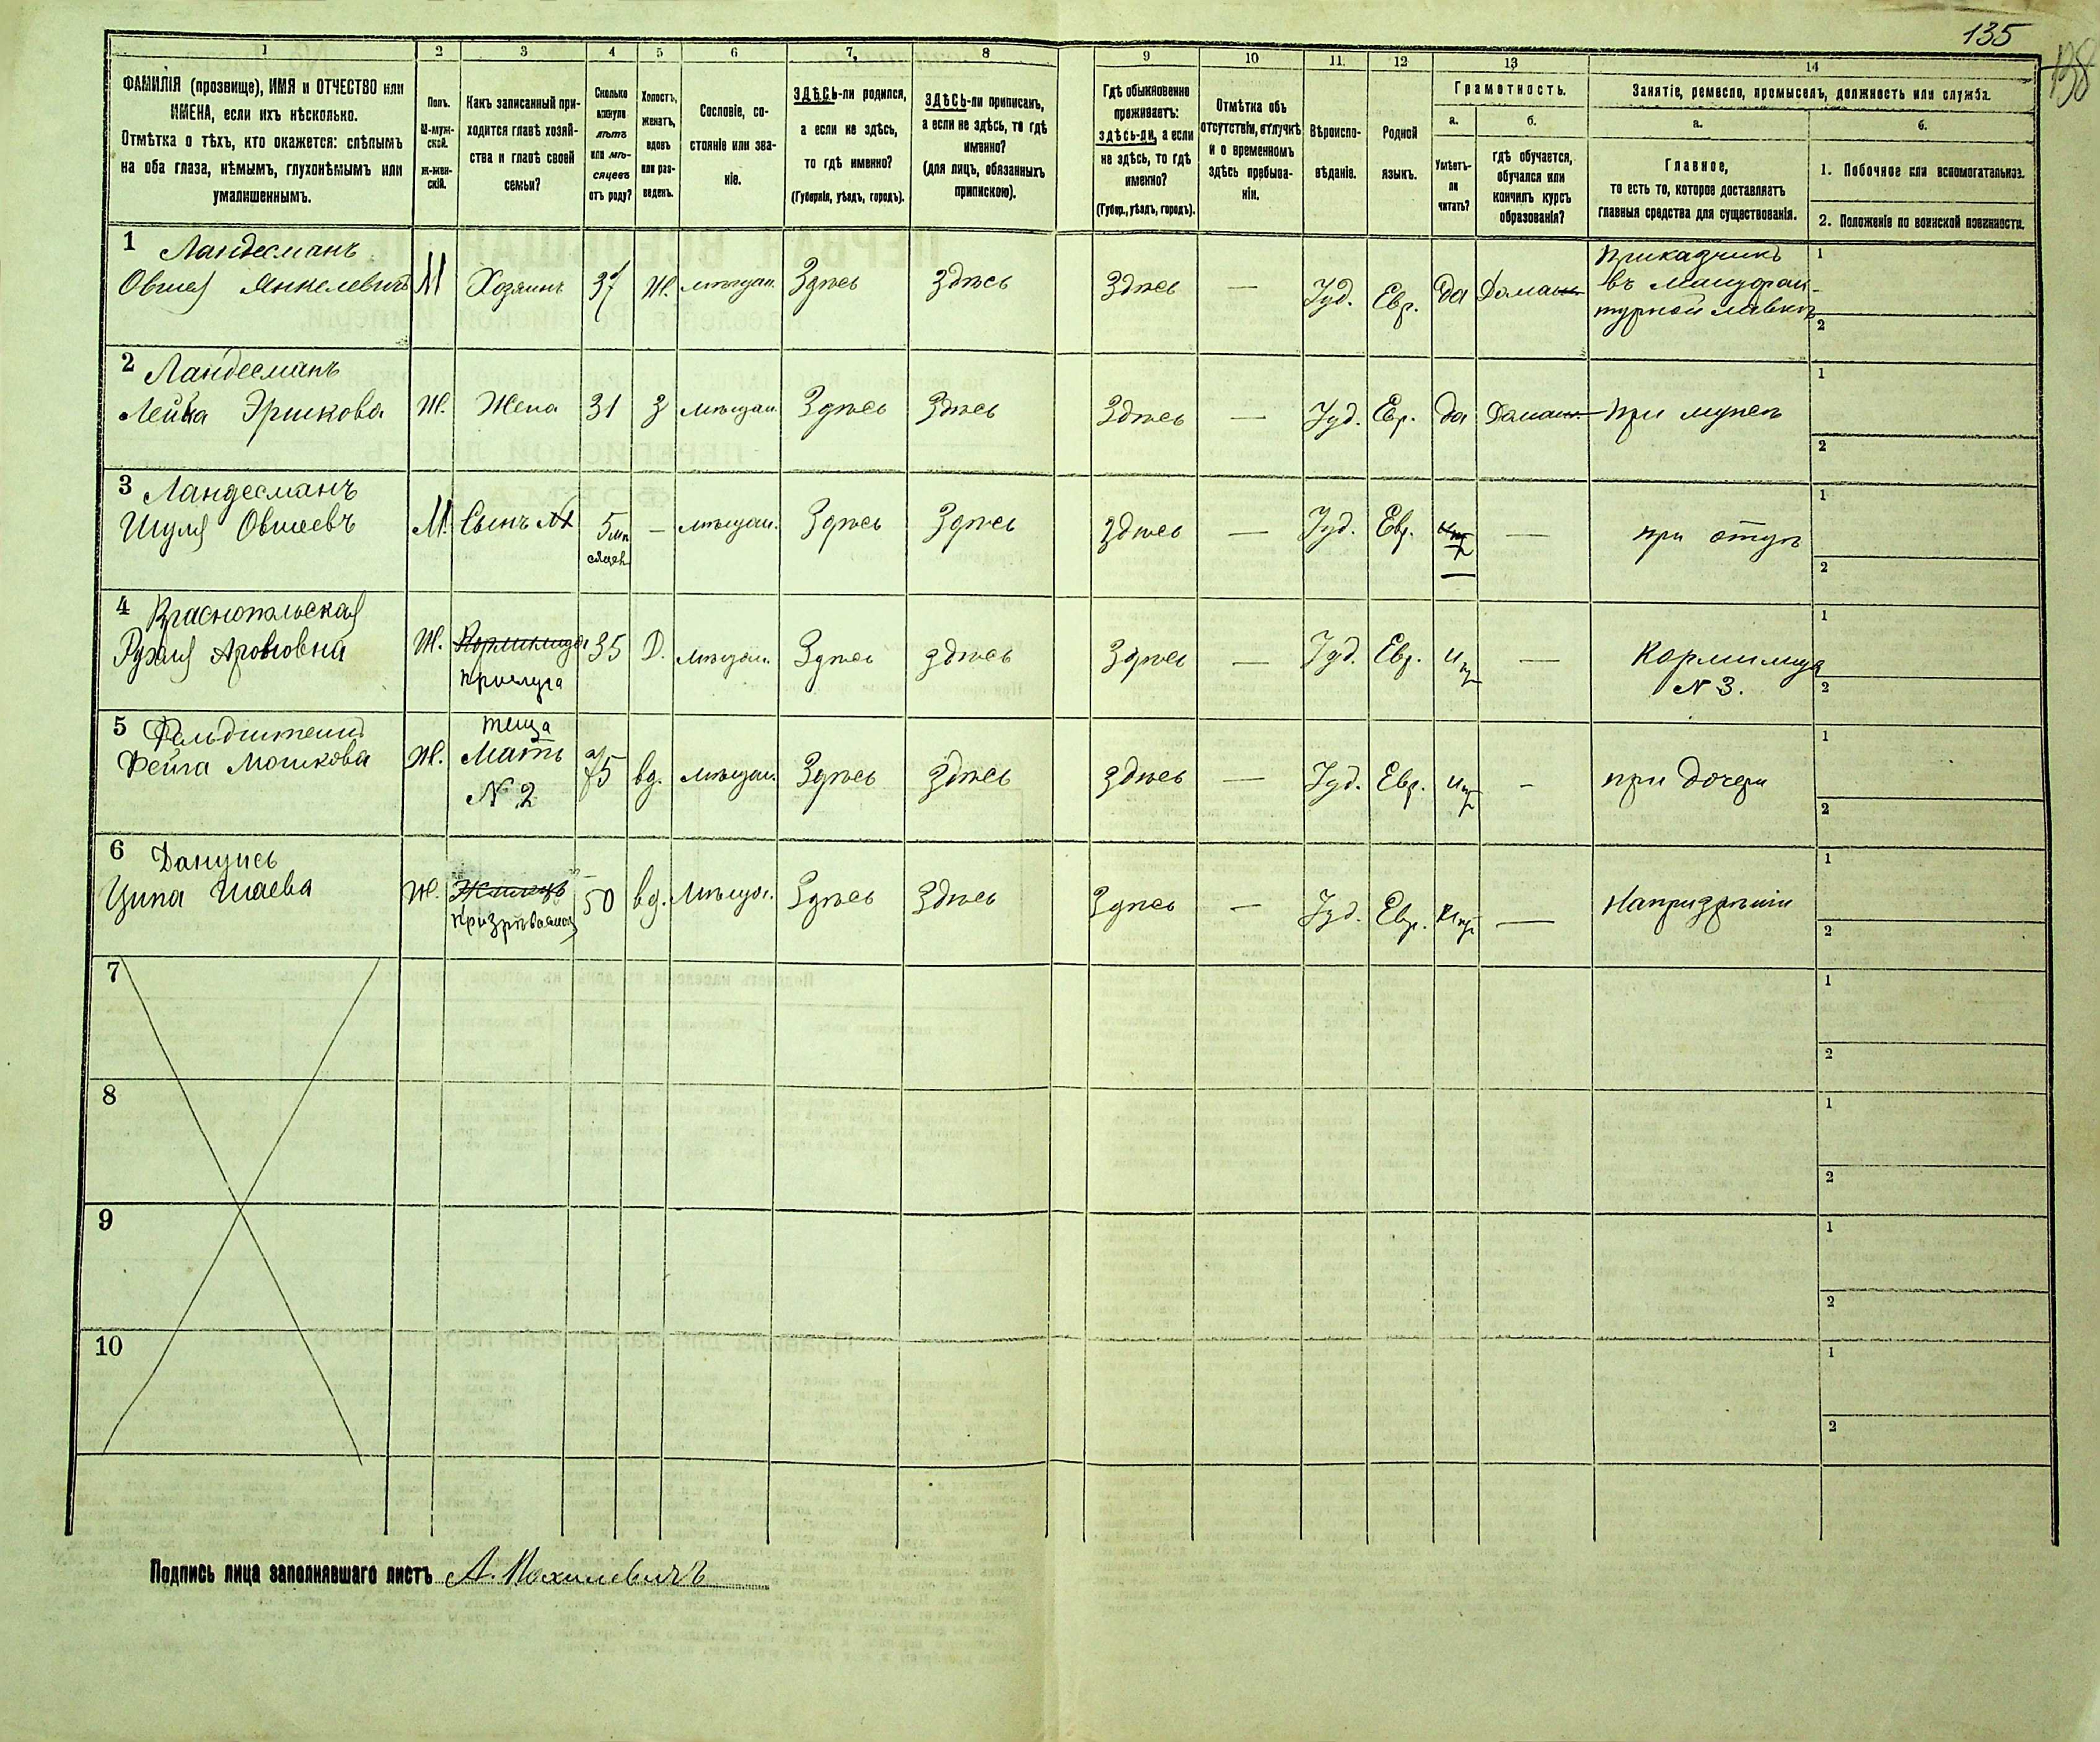 135
138
1 2 3 4 5 6 7 8 9 10 11 12 13 14
ФАМИЛІЯ (прозвище), ИМЯ и ОТЧЕСТВО или
ИМЕНА, если ихъ нѣсколько.
Отмѣтка о тѣхъ, кто окажется: слѣпымъ
на оба глаза, нѣмымъ, глухонѣмымъ или
умалишеннымъ.
Полъ.
М-муж-
ской.
Ж-жен-
скій.
Какъ записанный при-
ходится главѣ хозяй-
ства и главѣ своей
семьи?
Сколько
минуло
лѣтъ
или мѣ-
сяцевъ
отъ роду?
Холостъ,
женатъ,
вдовъ
или раз-
веденъ.
Сословіе, со-
стояніе или зва-
ніе.
ЗДѢСЬ-ли родился,
а если не здѣсь,
то гдѣ именно?
(Губернія, уѣздъ, городъ).
ЗДѢСЬ-ли приписанъ,
а если не здѣсь, то гдѣ
именно?
(для лицъ, обязанныхъ
припискою).
Гдѣ обыкновенно
проживаетъ:
здѣсь-ли, а если
не здѣсь, то гдѣ
именно?
(Губер., уѣздъ, городъ).
Отмѣтка объ
отсутствіи, отлучкѣ
и о временномъ
здѣсь пребыва-
ніи.
Вѣроиспо-
вѣданіе.
Родной
языкъ.
Грамотность.
а.
Умѣетъ-
ли
читать?
б.
гдѣ обучается,
обучался или
кончилъ курсъ
образованія?
Занятіе, ремесло, промыселъ, должность или служба.
а.
Главное,
то есть то, которое доставляетъ
главныя средства для существованія.
б.
1. Побочное или вспомогательное.
2. Положеніе по воинской повинности.
1 Ландесманъ
Овшея Янкелевичъ М Хозяинъ 37 Ж. мѣщан. Здѣсь здѣсь Здѣсь — Іуд. Евр. да Домаш. Приказчикъ
въ мануфак-
турной лавкѣ
1
2
2 Ландесманъ
Лейка Эршкова Ж. Жена 31 З мѣщан. Здѣсь Здѣсь Здѣсь — Іуд. Евр. да Домаш. При мужѣ
1
2
3 Ландесманъ
Шуля Овшеевъ М. Сынъ №1 5 мѣ
сяцев. — мѣщан. Здѣсь Здѣсь здѣсь — Іуд. Евр. — при отцѣ
1
2
4 Краснопольская
Рухля Ароновна Ж. Кормилица 35 Д. мѣщан. Здѣсь здѣсь Здѣсь — Іуд. Евр. нѣт —
прислуга
Кормилица
№ 3.
1
2
5 Фельдштейнъ
Фейга Мошкова Ж. теща
Мать
№ 2
75 вд. мѣщан. Здѣсь здѣсь здѣсь — Іуд. Евр. нѣт - при дочери
1
2
6
Ципа Шаева Ж. Жилецъ 50 вд. Мѣщан. Здѣсь Здѣсь Здѣсь — Іуд. Евр. нѣт — На призрѣніи
призрѣваемая
1
2
7
1
2
8
1
2
9
1
2
10
1
2
Подпись лица заполнявшаго листъ А. Махилевичъ